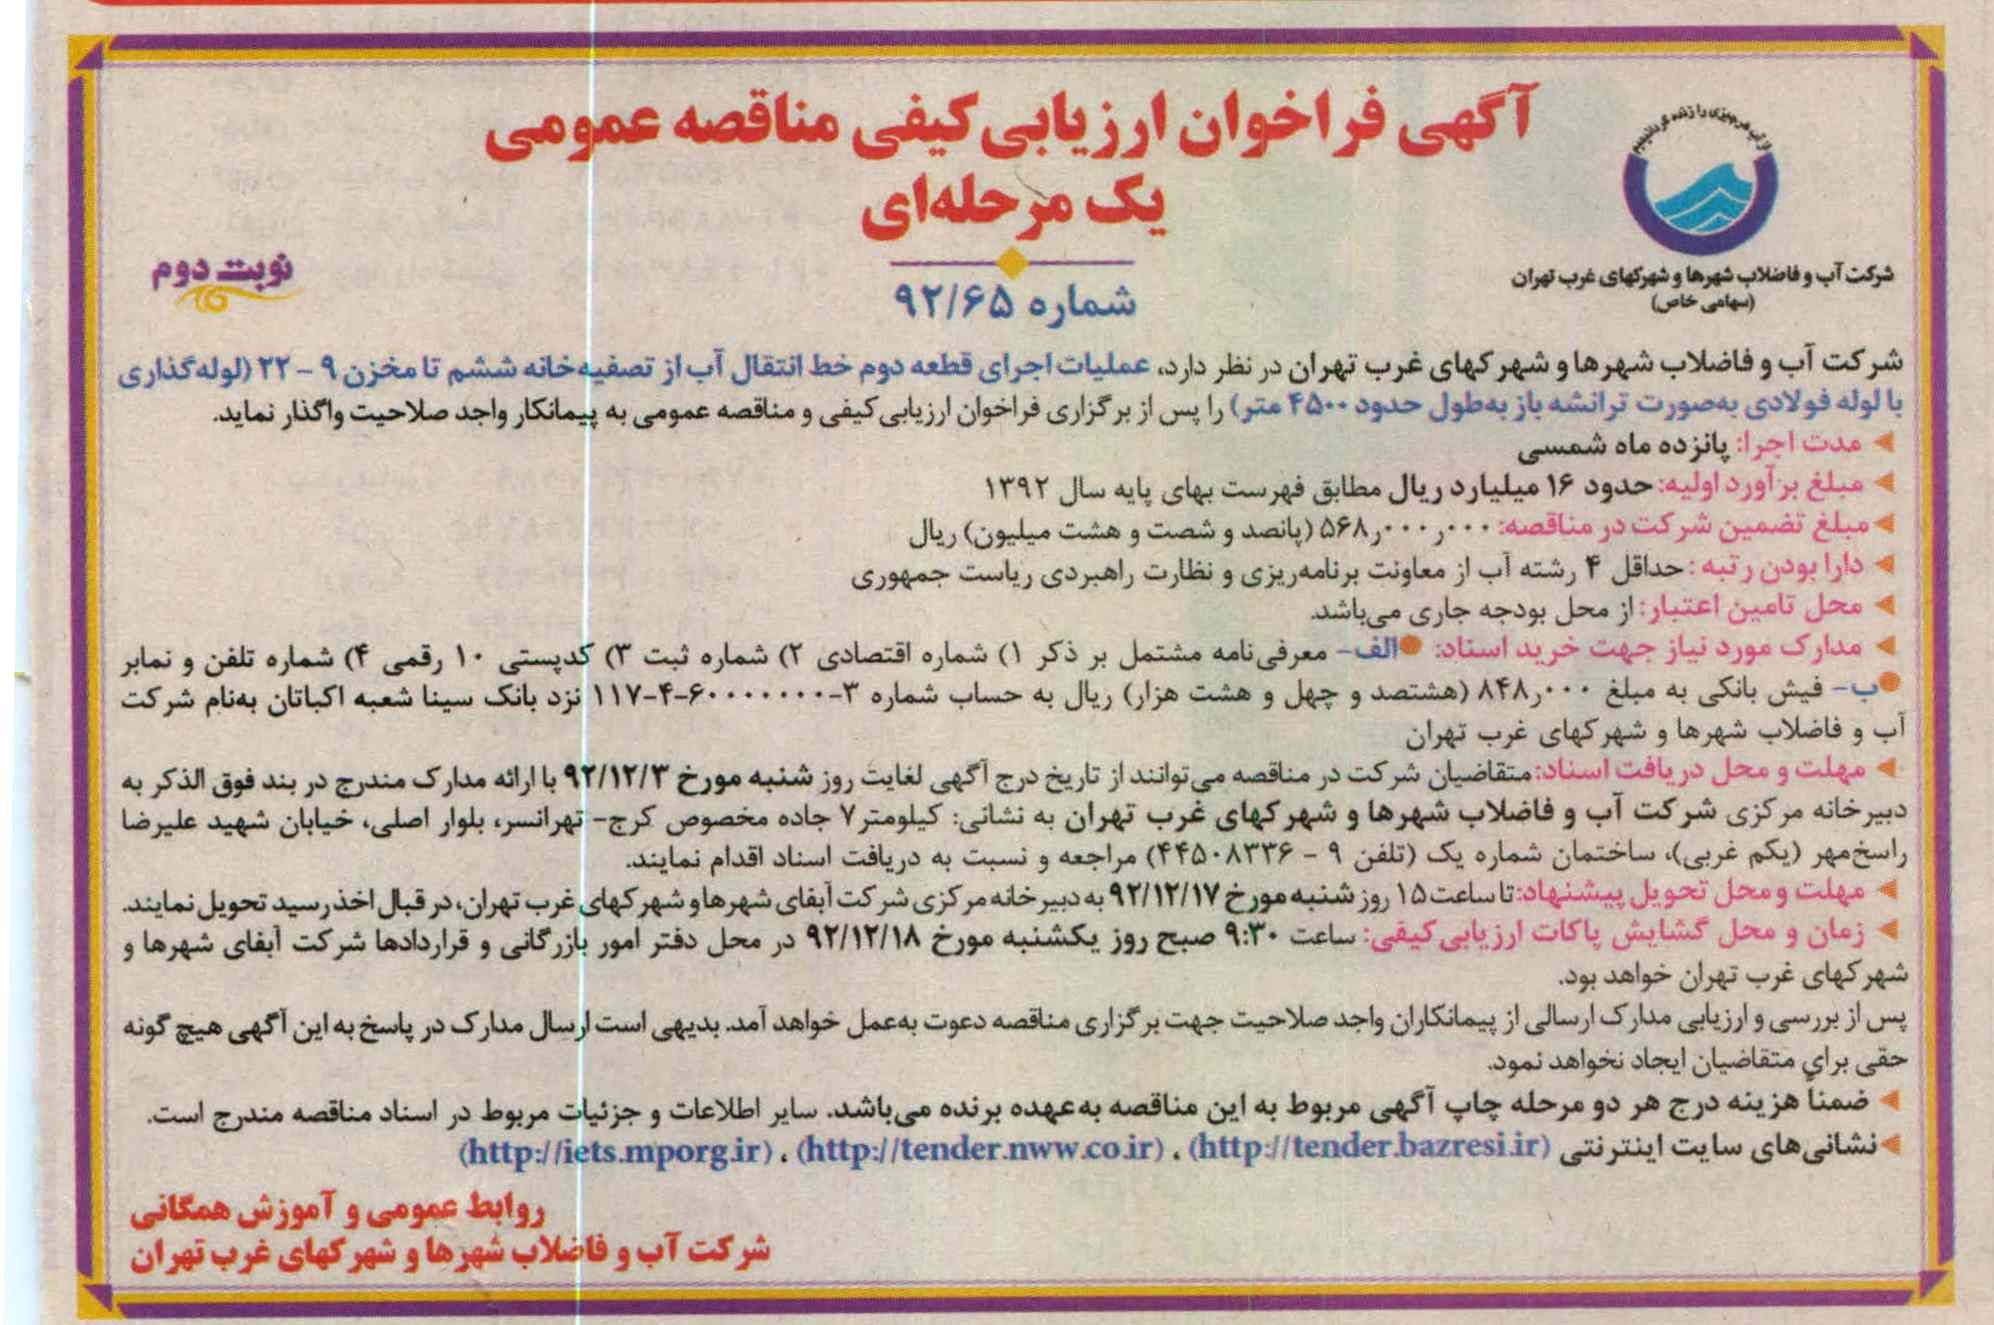 آگهی فراخوان ارزیابی کیفی مناقصه عمومی
یک مرحله‌ای
شماره ۹۲/۶۵
نوبت دوم
از آب هر چیزی را زنده گردانیدیم
شرکت آب و فاضلاب شهرها و شهرکهای غرب تهران
(سهامی خاص)
شرکت آب و فاضلاب شهرها و شهرکهای غرب تهران در نظر دارد، عملیات اجرای قطعه دوم خط انتقال آب از تصفیه‌خانه ششم تا مخزن ۹ - ۲۲ (لوله‌گذاری
با لوله فولادی به‌صورت ترانشه باز به‌طول حدود ۴۵۰۰ متر) را پس از برگزاری فراخوان ارزیابی کیفی و مناقصه عمومی به پیمانکار واجد صلاحیت واگذار نماید.
مدت اجرا: پانزده ماه شمسی
مبلغ برآورد اولیه: حدود ۱۶ میلیارد ریال مطابق فهرست بهای پایه سال ۱۳۹۲
مبلغ تضمین شرکت در مناقصه: ۵۶۸ر۰۰۰ر۰۰۰ (پانصد و شصت و هشت میلیون) ریال
دارا بودن رتبه: حداقل ۴ رشته آب از معاونت برنامه‌ریزی و نظارت راهبردی ریاست جمهوری
محل تامین اعتبار: از محل بودجه جاری می‌باشد.
مدارک مورد نیاز جهت خرید اسناد: الف- معرفی‌نامه مشتمل بر ذکر ۱) شماره اقتصادی ۲) شماره ثبت ۳) کدپستی ۱۰ رقمی ۴) شماره تلفن و نمابر
ب- فیش بانکی به مبلغ ۸۴۸ر۰۰۰ (هشتصد و چهل و هشت هزار) ریال به حساب شماره ۳-۶۰۰۰۰۰۰۰-۴-۱۱۷ نزد بانک سینا شعبه اکباتان به‌نام شرکت
آب و فاضلاب شهرها و شهرکهای غرب تهران
مهلت و محل دریافت اسناد: متقاضیان شرکت در مناقصه می‌توانند از تاریخ درج آگهی لغایت روز شنبه مورخ ۹۲/۱۲/۳ با ارائه مدارک مندرج در بند فوق الذکر به
دبیرخانه مرکزی شرکت آب و فاضلاب شهرها و شهرکهای غرب تهران به نشانی: کیلومتر ۷ جاده مخصوص کرج- تهرانسر، بلوار اصلی، خیابان شهید علیرضا
راسخ‌مهر (یکم غربی)، ساختمان شماره یک (تلفن ۹ - ۴۴۵۰۸۳۳۶) مراجعه و نسبت به دریافت اسناد اقدام نمایند.
مهلت و محل تحویل پیشنهاد: تا ساعت ۱۵ روز شنبه مورخ ۹۲/۱۲/۱۷ به دبیرخانه مرکزی شرکت آبفای شهرها و شهرکهای غرب تهران، در قبال اخذ رسید تحویل نمایند.
زمان و محل گشایش پاکات ارزیابی کیفی: ساعت ۹:۳۰ صبح روز یکشنبه مورخ ۹۲/۱۲/۱۸ در محل دفتر امور بازرگانی و قراردادها شرکت آبفای شهرها و
شهرکهای غرب تهران خواهد بود.
پس از بررسی و ارزیابی مدارک ارسالی از پیمانکاران واجد صلاحیت جهت برگزاری مناقصه دعوت به‌عمل خواهد آمد. بدیهی است ارسال مدارک در پاسخ به این آگهی هیچ گونه
حقی برای متقاضیان ایجاد نخواهد نمود.
ضمناً هزینه درج هر دو مرحله چاپ آگهی مربوط به این مناقصه به‌عهده برنده می‌باشد. سایر اطلاعات و جزئیات مربوط در اسناد مناقصه مندرج است.
نشانی‌های سایت اینترنتی (http://tender.bazresi.ir) ، (http://tender.nww.co.ir) ، (http://iets.mporg.ir)
روابط عمومی و آموزش همگانی
شرکت آب و فاضلاب شهرها و شهرکهای غرب تهران